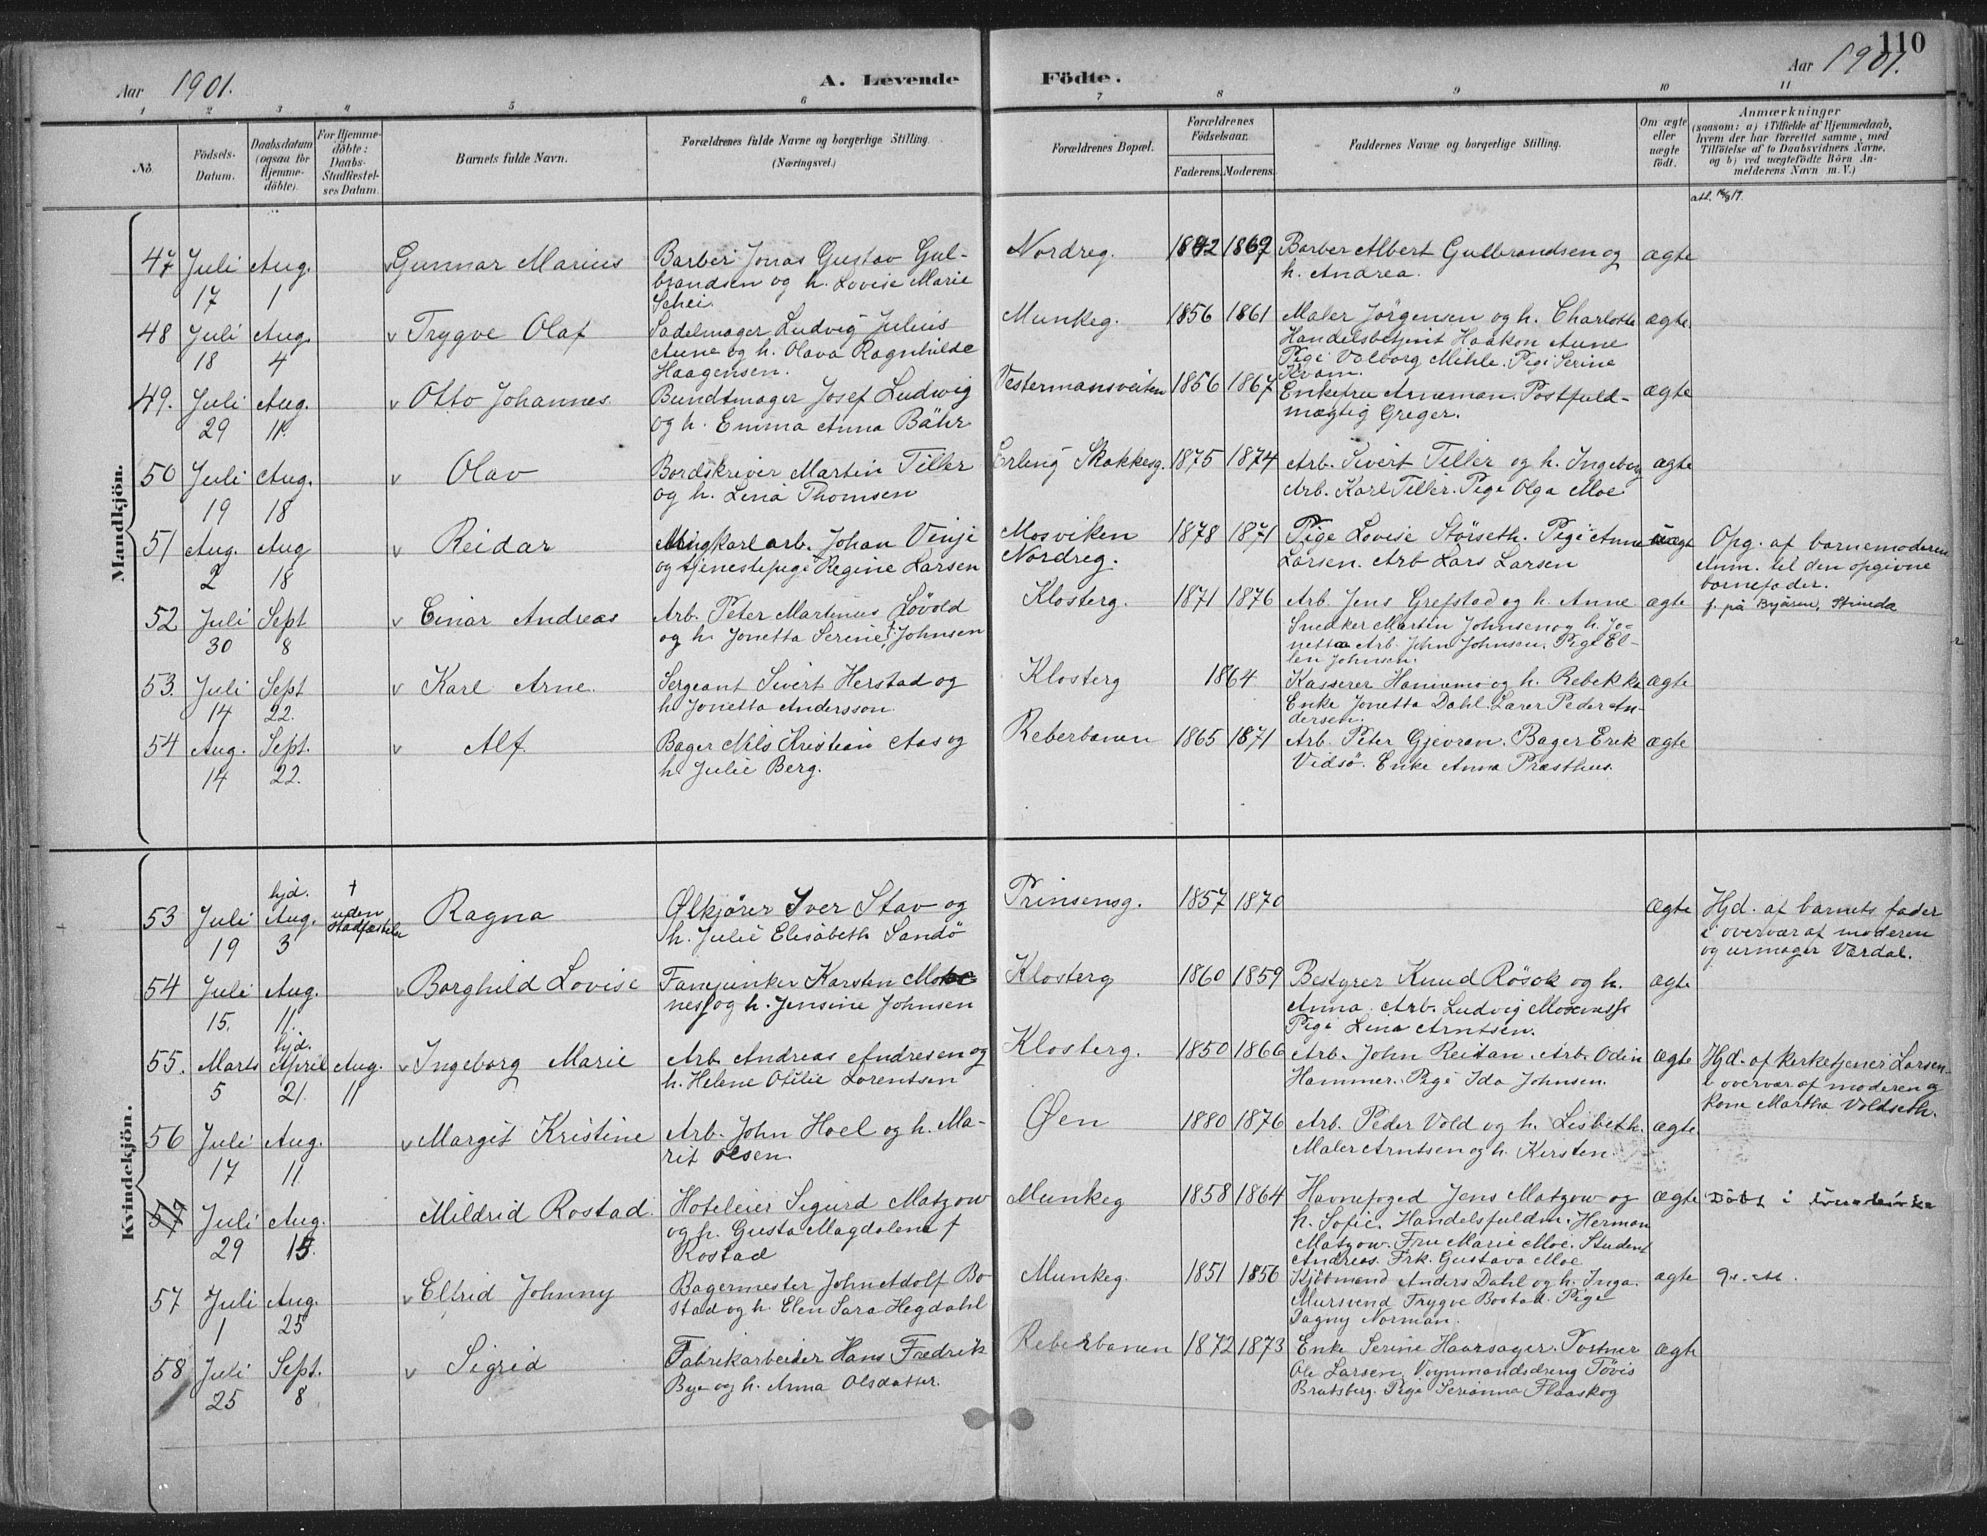 110
Aar 1901. A. Levende Födte. Aar 1901.
1 2 3 4 5 6 7 8 9 10 11
No.
Födsels-
Datum.
Daabsdatum
(ogsaa for
Hjemme-
döbte).
For Hjemme-
döbte:
Daabs-
Stadfæstel-
ses Datum.
Barnets fulde Navn.
Forældrenes fulde Navne og borgerlige Stilling
(Næringsvei.)
Forældrenes Bopæl.
Forældrenes
Födselsaar.
Faderens. Moderens.
Faddernes Navne og borgerlige Stilling.
Om ægte
eller
uægte
födt.
Anmærkninger
(saasom: a) i Tilfælde af Hjemmedaab,
hvem der har forrettet samme, med
Tilföielse af to Daabsvidners Navne,
og b) ved uægtefödte Börn An-
melderens Navn m. V.)
Mandkjön.
47 Juli Aug. v Gunnar Marius Barber Jonas Gustav Gul- Nordreg. 1842 1862 Barber Albert Gulbrandsen og ægte
17 1 brandsen og h. Lovise Marie h. Andrea.
Schei.
48 Juli Aug. v Trygve Olaf Sadelmager Ludvig Julius Munkeg. 1856 1861 Maler Jörgensen og h. Charlotte ægte.
18 4 Aune og h. Olava Ragnhilde Handelsbetjent Haakon Aune
Haagensen. Pige Valborg Mihle. Pige Serine
Kvam.
49. Juli Aug. v Otto Johannes Bundtmager Josef Ludwig Vestermansveiten 1856 1867 Enkefru Arneman. Postfuld- ægte
29 11. og h. Emma Anna Bähr mægtig Greger.
50 Juli Aug. v Olav Bordskriver Martin Tiller Erling Skakkesg. 1875 1874 Arb. Sivert Tiller og h. Ingeborg ægte
19 18 og h. Lina Thomsen Arb. Karl Tiller. Pige Olga Moe
51 Aug. Aug v Reidar Ungkarl arb. Johan Vinje Mosviken 1878 1871 Pige Lovise Störseth. Pige Anne uægte Opg. af barnemoderen
2 18 og tjenestepige Regine Larsen Nordreg. Larsen. Arb Lars Larsen Anm. til den opgivne
barnefader.
52 Juli Sept v Einar Andreas Arb. Peter Martinus Lövold Klosterg. 1871 1876 Arb. Jens Grefstad og h. Anne ægte
30 8 og h. Jonetta Serine Johnsen Snekker Martin Johnsen og h. Jo-
netta Arb. John Johnsen. Pige El-
len Johnsen.
53. Juli Sept v Karl Arne. Sergeant Sivert Herstad og Klosterg 1864 Kasserer Hannemo og h. Rebekka ægte
14 22. h. Jonetta Andersson. Enke Jonetta Dahl. Lærer Peder An-
dersen.
54 Aug. Sept. v Alf. Bager Nils Kristian Aas og Reberbanen 1865 1871 Arb. Peter Gjevran. Bager Erik ægte
14 22. h. Julie Berg. Vidsö. Enke Anna Præsthus.
Kvindekjön.
hjd. †
53 Juli Aug. uden Stadfæstelse Ragna Ølkjører Iver Stav og Prinsensg. 1857 1870 ægte Hjd. af barnets fader
19 3 h. Julie Elisabeth Sandö i overvær af moderen
og urmager Værdal.
54 Juli Aug. v Borghild Lovise Fanejunker Karsten Klosterg 1860 1859 Bestyrer Knud Rösok og h. ægte
15. 11. og h. Jensine Johnsen Anna. Arb. Ludvig
Pige Lina Arntsen.
hjd.
55. Marts April Aug. v Ingeborg Marie Arb. Andreas Andresen og Klosterg. 1850 1866 Arb. John Reitan. Arb. Odin ægte Hjd. af kirketjener Larsen
5 21. 11 h. Helene Otilie Lorentsen Hammer. Pige Ida Johnsen. i overvær af moderen og
kone Martha Voldseth.
56 Juli Aug. v Margit Kristine Arb. John Hoel og h. Ma- Øen 1880 1876 Arb. Peder Vold og h. Lisbeth. ægte.
17 11 rit Olsen. Maler Arntsen og h. Kirsten
Juli Aug. Mildrid Rostad. Hoteleier Sigurd Matzow Munkeg 1858 1864 Havnefoged Jens Matzow og ægte Döbt i
29 15. og h. Gusta Magdalene f. h. Sofie. Handelsfuldm. Herman
Rostad Matzow. Fru Marie Moe. Student
Andreas. Frk. Gustava Moe
57 Juli Aug. v Elfrid Johnny Bagermester John Adolf Bo- Munkeg. 1851 1856 Kjöbmand Anders Dahl og h. Inga. ægte
1 25 stad og h. Elen Sara Hegdahl Mursvend Trygve Bostad. Pige
Dagny Norman.
58 Juli Sept. v Sigrid Fabrikarbeider Hans Fredrik Reberbanen 1872 1873 Enke Serine Haarsager. Portner ægte
25 8 Bye og h. Anna Olsdatter. Ole Larsen. Vognmandsdreng Tövis
Bratsberg. Pige Serianna Flaaskog